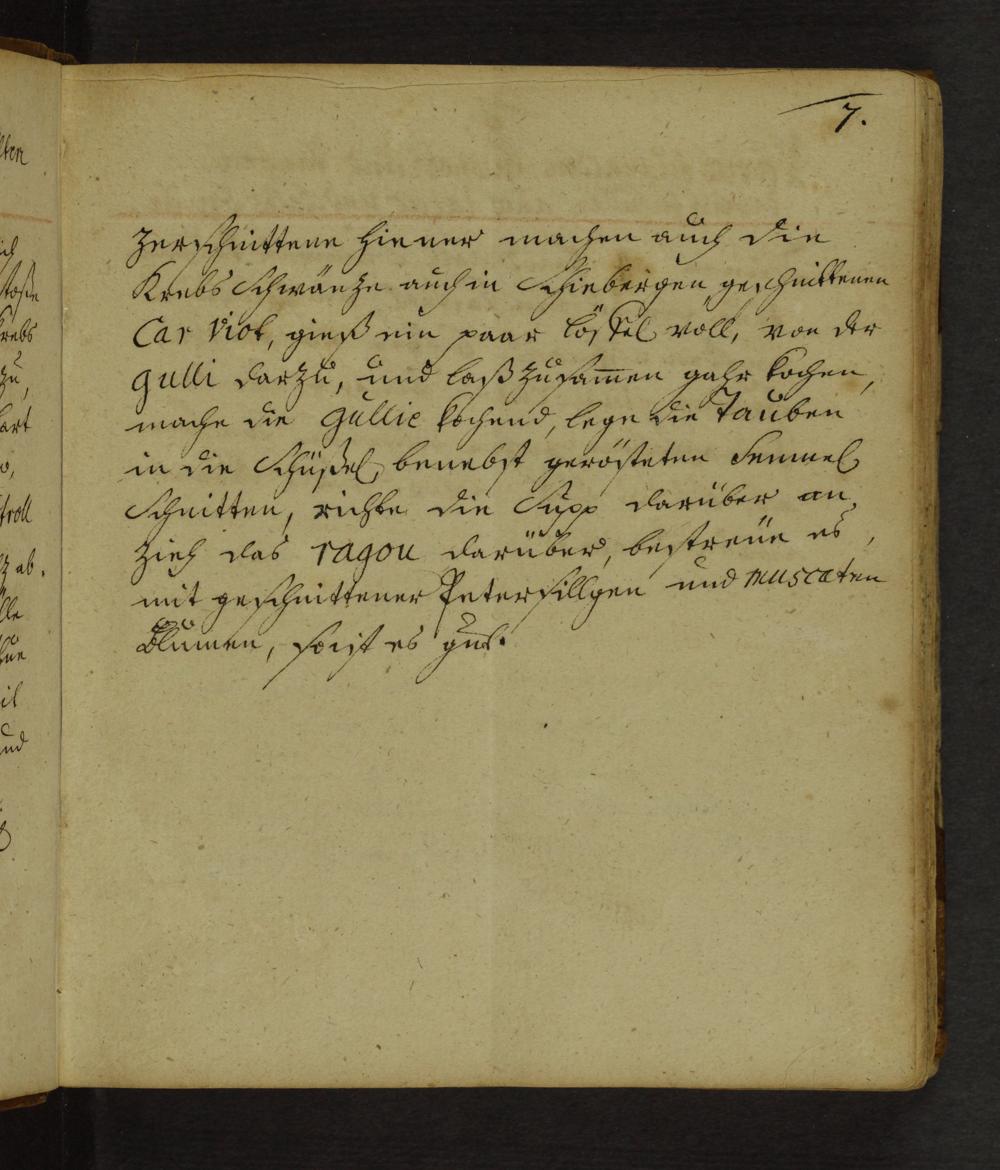 7.
zerschnittene Hiener machen auch die
Krebs Schwäntze auch in Schiebergen geschnittenen
Car viol, gieß ein paar Löffel voll, von der
gulli darzu, und laß zusam̄en gahr kochen,
mache die gullie kochend, lege die Tauben
in die Schüßel, benebst gerösteten Semmel
Schnitten, richte die Supp darüber an,
zieh das ragou darüber, bestreüe es,
mit geschnittener Petersillgen und muscaten
Blumen, so ist es gut.